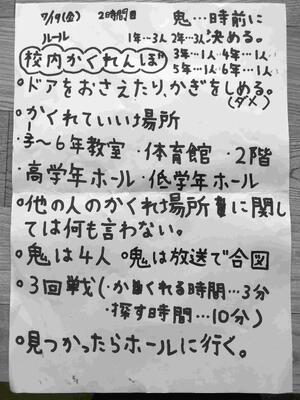 7/19(金) 2時間目 鬼…時前に
ルール 1年…3人 2年…3人 決める。
校内かくれんぼ 3年…1人 4年…1人
5年…1人 6年…1人
○ドアをおさえたり、かぎをしめる。
(ダメ)
○かくれていい場所
・3~6年教室 ・体育館 ・2階
・高学年ホール ・低学年ホール
○他の人のかくれ場所に関し
ては何も言わない。
○鬼は4人 ○鬼は放送で合図
○3回戦(・かくれる時間…3分
・探す時間…10分)
○見つかったらホールに行く。